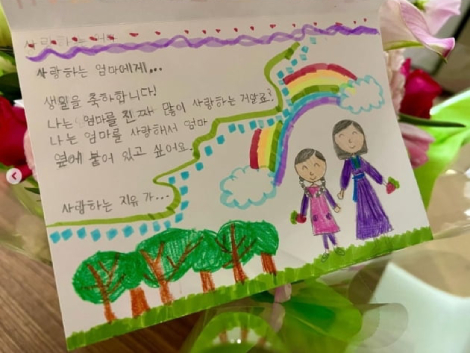 사랑하는 엄마에게...
생일을 축하합니다!
나는 엄마를 진짜 많이 사랑하는 거알죠?
나는 엄마를 사랑해서 엄마
옆에 붙어 있고 싶어요..
사랑하는 지유가...